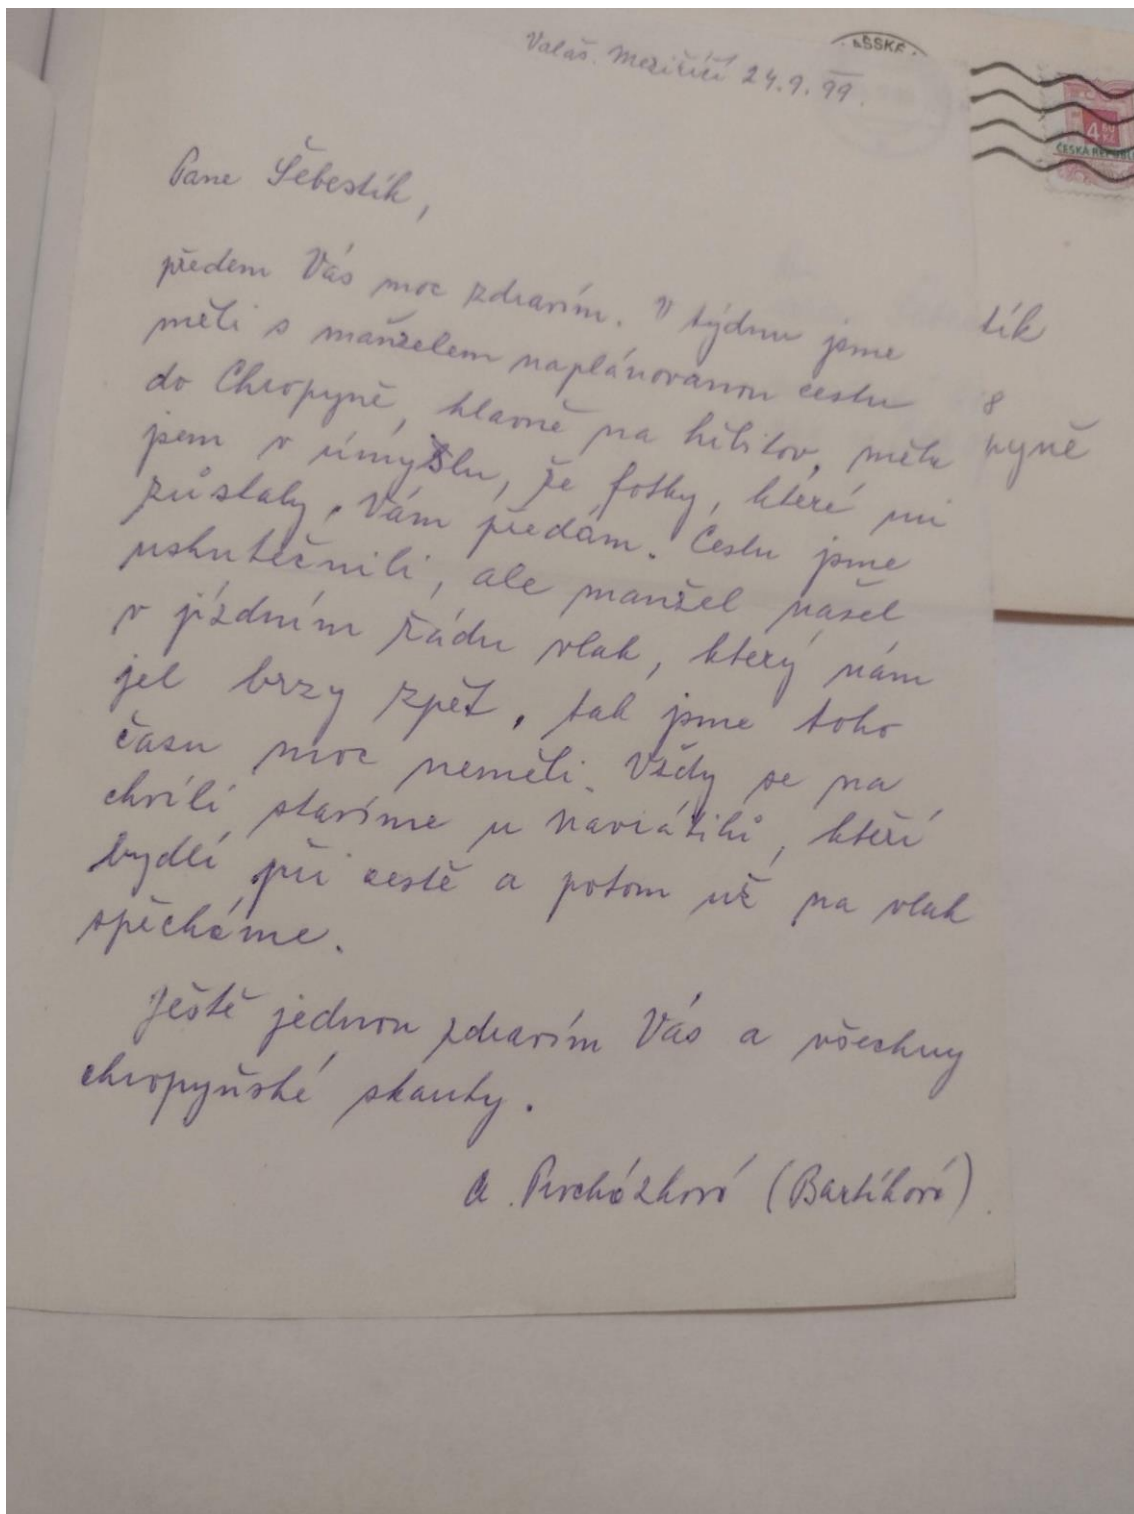 Valaš. Meziříčí 24.9.99.
AŠSKÉ
4 60 Kč
ČESKÁ REPUBL
Pane Šebestík,
předem Vás moc zdravím. V týdnu jsme
měli s manželem naplánovanou cestu
do Chropyně, hlavně na hřbitov, měla
jsem v úmyslu, že fotky, které mi
zůstaly, Vám předám. Cestu jsme
uskutečnili, ale manžel našel
v jízdním řádu vlak, který nám
jel brzy zpět, tak jsme toho
času moc neměli. Vždy se na
chvíli stavíme u Navrátilů, kteří
bydlí při cestě a potom už na vlak
spěcháme.
Ještě jednou zdravím Vás a všechny
chropyňské skauty.
A. Procházková (Bartíková).
tík
8
pyně